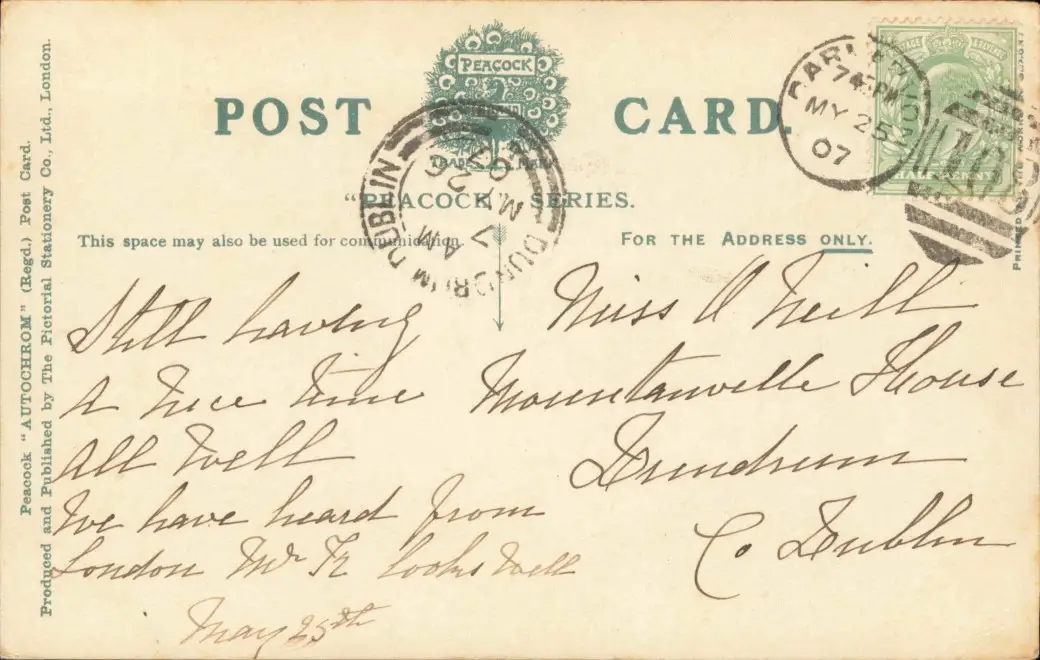 POST CARD.
PEACOCK
TRADE MARK
"PEACOCK" SERIES.
This space may also be used for communication.
FOR THE ADDRESS ONLY.
Peacock "AUTOCHROM" (Regd.) Post Card.
Produced and Published by The Pictorial Stationery Co., Ltd., London.
DARLINGTON
745PM
MY 25
07
HALF PENNY
DUNDRUM DUBLIN
7 AM
MY 26
07
Still having
a nice time
all well
We have heard from
London Mr K looks well
May 25th
Miss O Neill
Mountanville House
Dundrum
Co Dublin